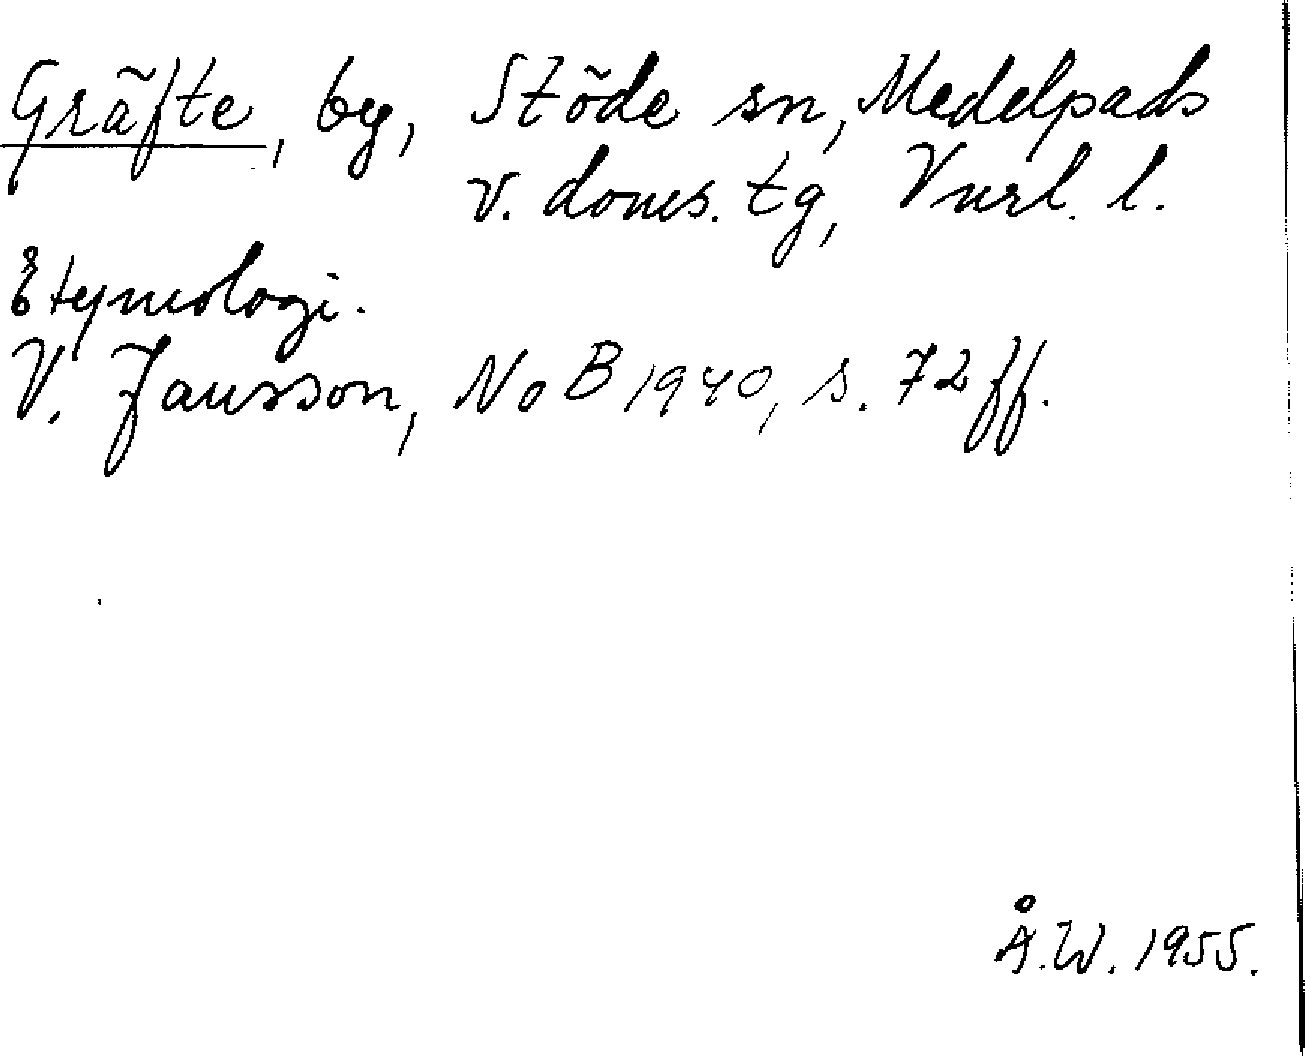 Gräfte, by, Stöde sn, Medelpads
v. doms. tg, Vnrl. l.
Etymologi.
V. Jansson, NoB 1940, s. 72 ff.
Å.W. 1955.